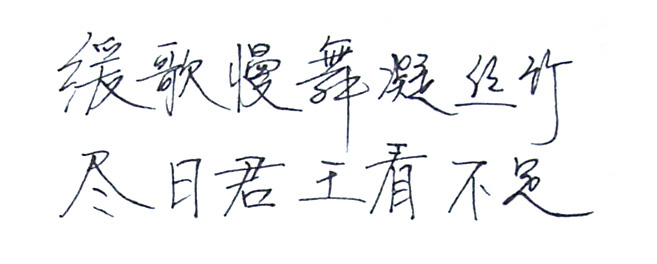 缓歌慢舞凝丝竹
尽日君王看不足